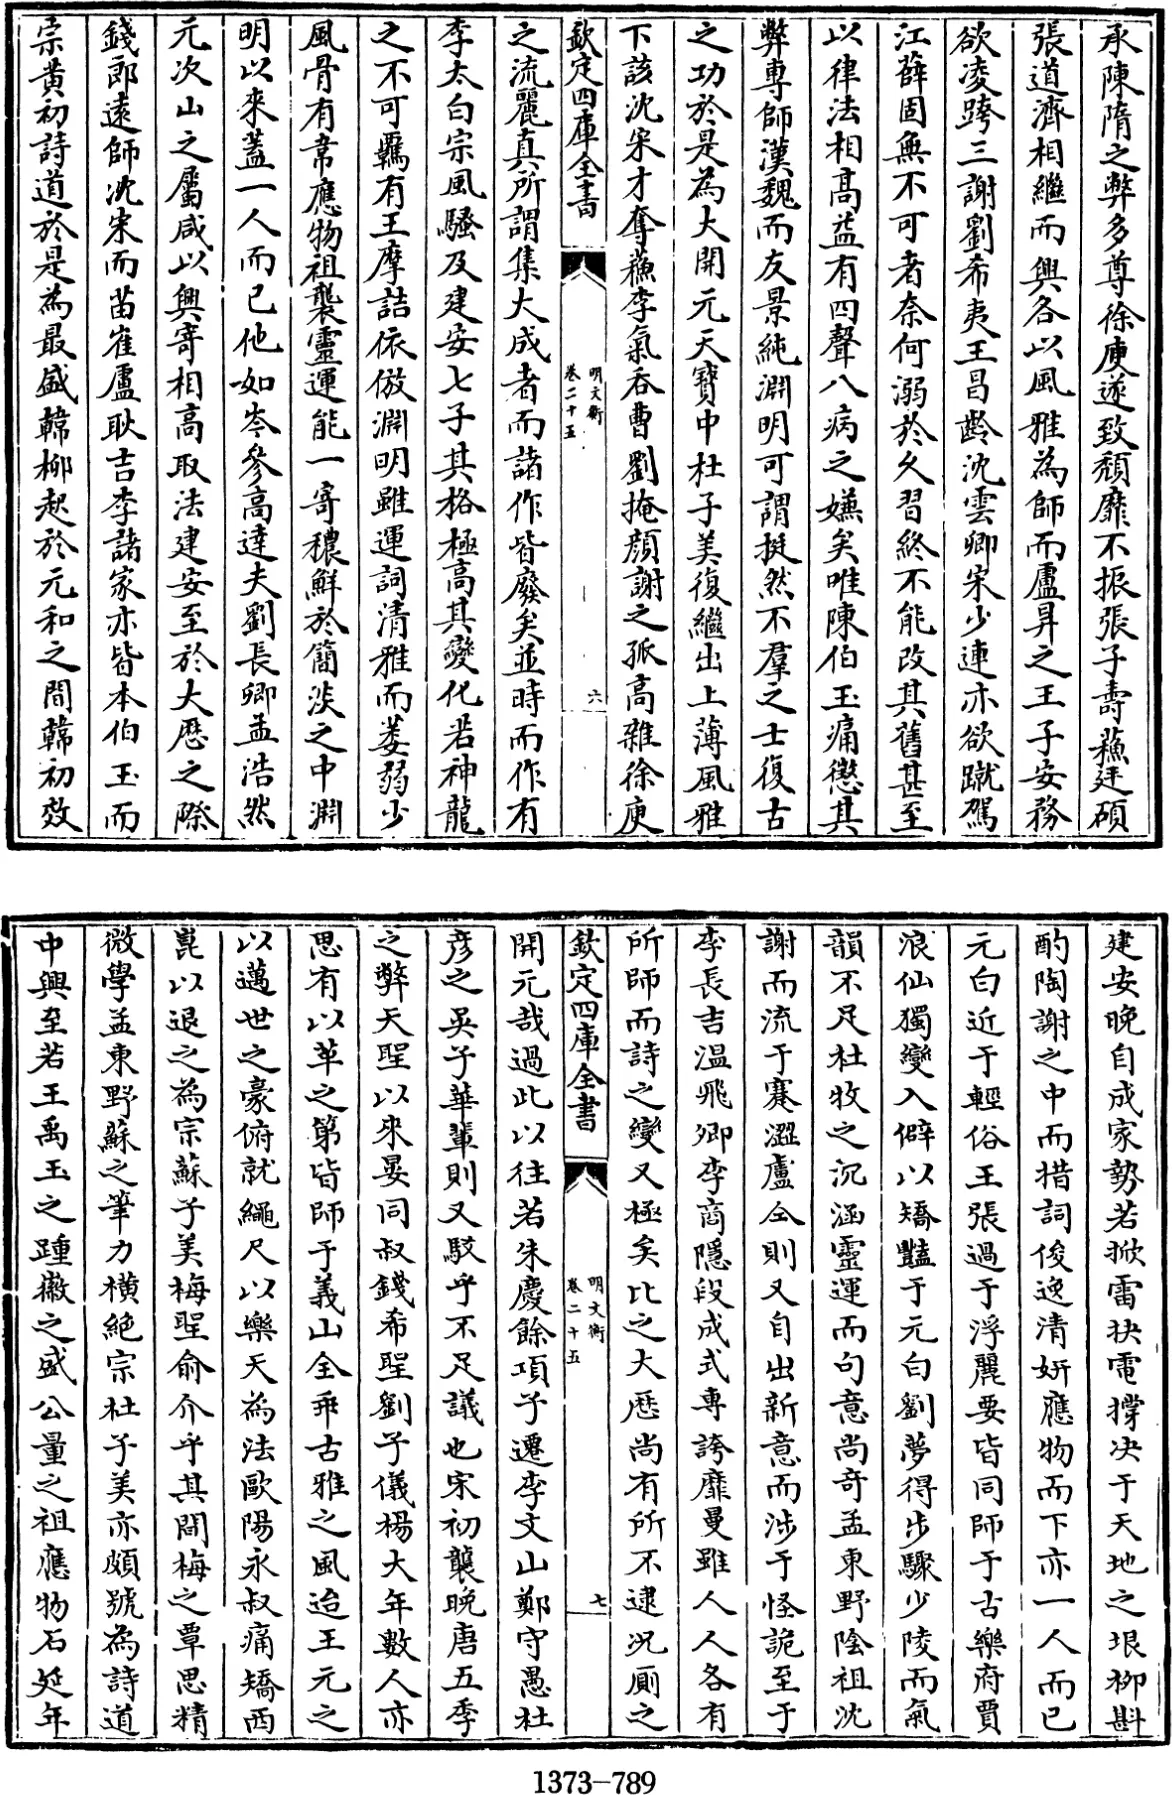 承陳隋之弊多尊徐庾遂致頽靡不振張子壽蘇廷碩
張道濟相繼而興各以風雅為師而盧昇之王子安務
欲凌跨三謝劉希夷王昌齡沈雲卿宋少連亦欲蹴駕
江薛固無不可者奈何溺於久習終不能改其舊甚至
以律法相高益有四聲八病之嫌矣唯陳伯玉痛懲其
弊專師漢魏而友景純淵明可謂挺然不羣之士復古
之功於是為大開元天寶中杜子美復繼出上薄風雅
下該沈宋才奪蘇李氣吞曹劉掩顔謝之孤高雜徐庾
欽定四庫全書
明文衡
卷二十五
六
之流麗真所謂集大成者而諸作皆廢矣並時而作有
李太白宗風騷及建安七子其格極高其變化若神龍
之不可羈有王摩詰依倣淵明雖運詞清雅而萎弱少
風骨有韋應物祖襲靈運能一寄穠鮮於簡淡之中淵
明以來蓋一人而已他如岑參高達夫劉長卿孟浩然
元次山之屬咸以興寄相高取法建安至於大厯之際
錢郎遠師沈宋而苗崔盧耿吉李諸家亦皆本伯玉而
宗黄初詩道於是為最盛韓柳起於元和之間韓初效
建安晚自成家勢若掀雷抉電撐決于天地之垠柳斟
酌陶謝之中而措詞俊逸清妍應物而下亦一人而已
元白近于輕俗王張過于浮麗要皆同師于古樂府賈
浪仙獨變入僻以矯豔于元白劉夢得步驟少陵而氣
韻不足杜牧之沉涵靈運而句意尚奇孟東野陰祖沈
謝而流于蹇澀盧仝則又自出新意而涉于怪詭至于
李長吉溫飛卿李商隱段成式專誇靡曼雖人人各有
所師而詩之變又極矣比之大厯尚有所不逮况厠之
欽定四庫全書
明文衡
卷二十五
七
開元哉過此以往若朱慶餘項子遷李文山鄭守愚杜
彦之吳子華輩則又駁乎不足議也宋初襲晚唐五季
之弊天聖以來晏同叔錢希聖劉子儀楊大年數人亦
思有以革之第皆師于義山全乖古雅之風迨王元之
以邁世之豪俯就繩尺以樂天為法歐陽永叔痛矯西
崑以退之為宗蘇子美梅聖俞介乎其間梅之覃思精
微學孟東野蘇之筆力横絶宗杜子美亦頗號為詩道
中興至若王禹玉之踵徽之盛公量之祖應物石延年
1373-789